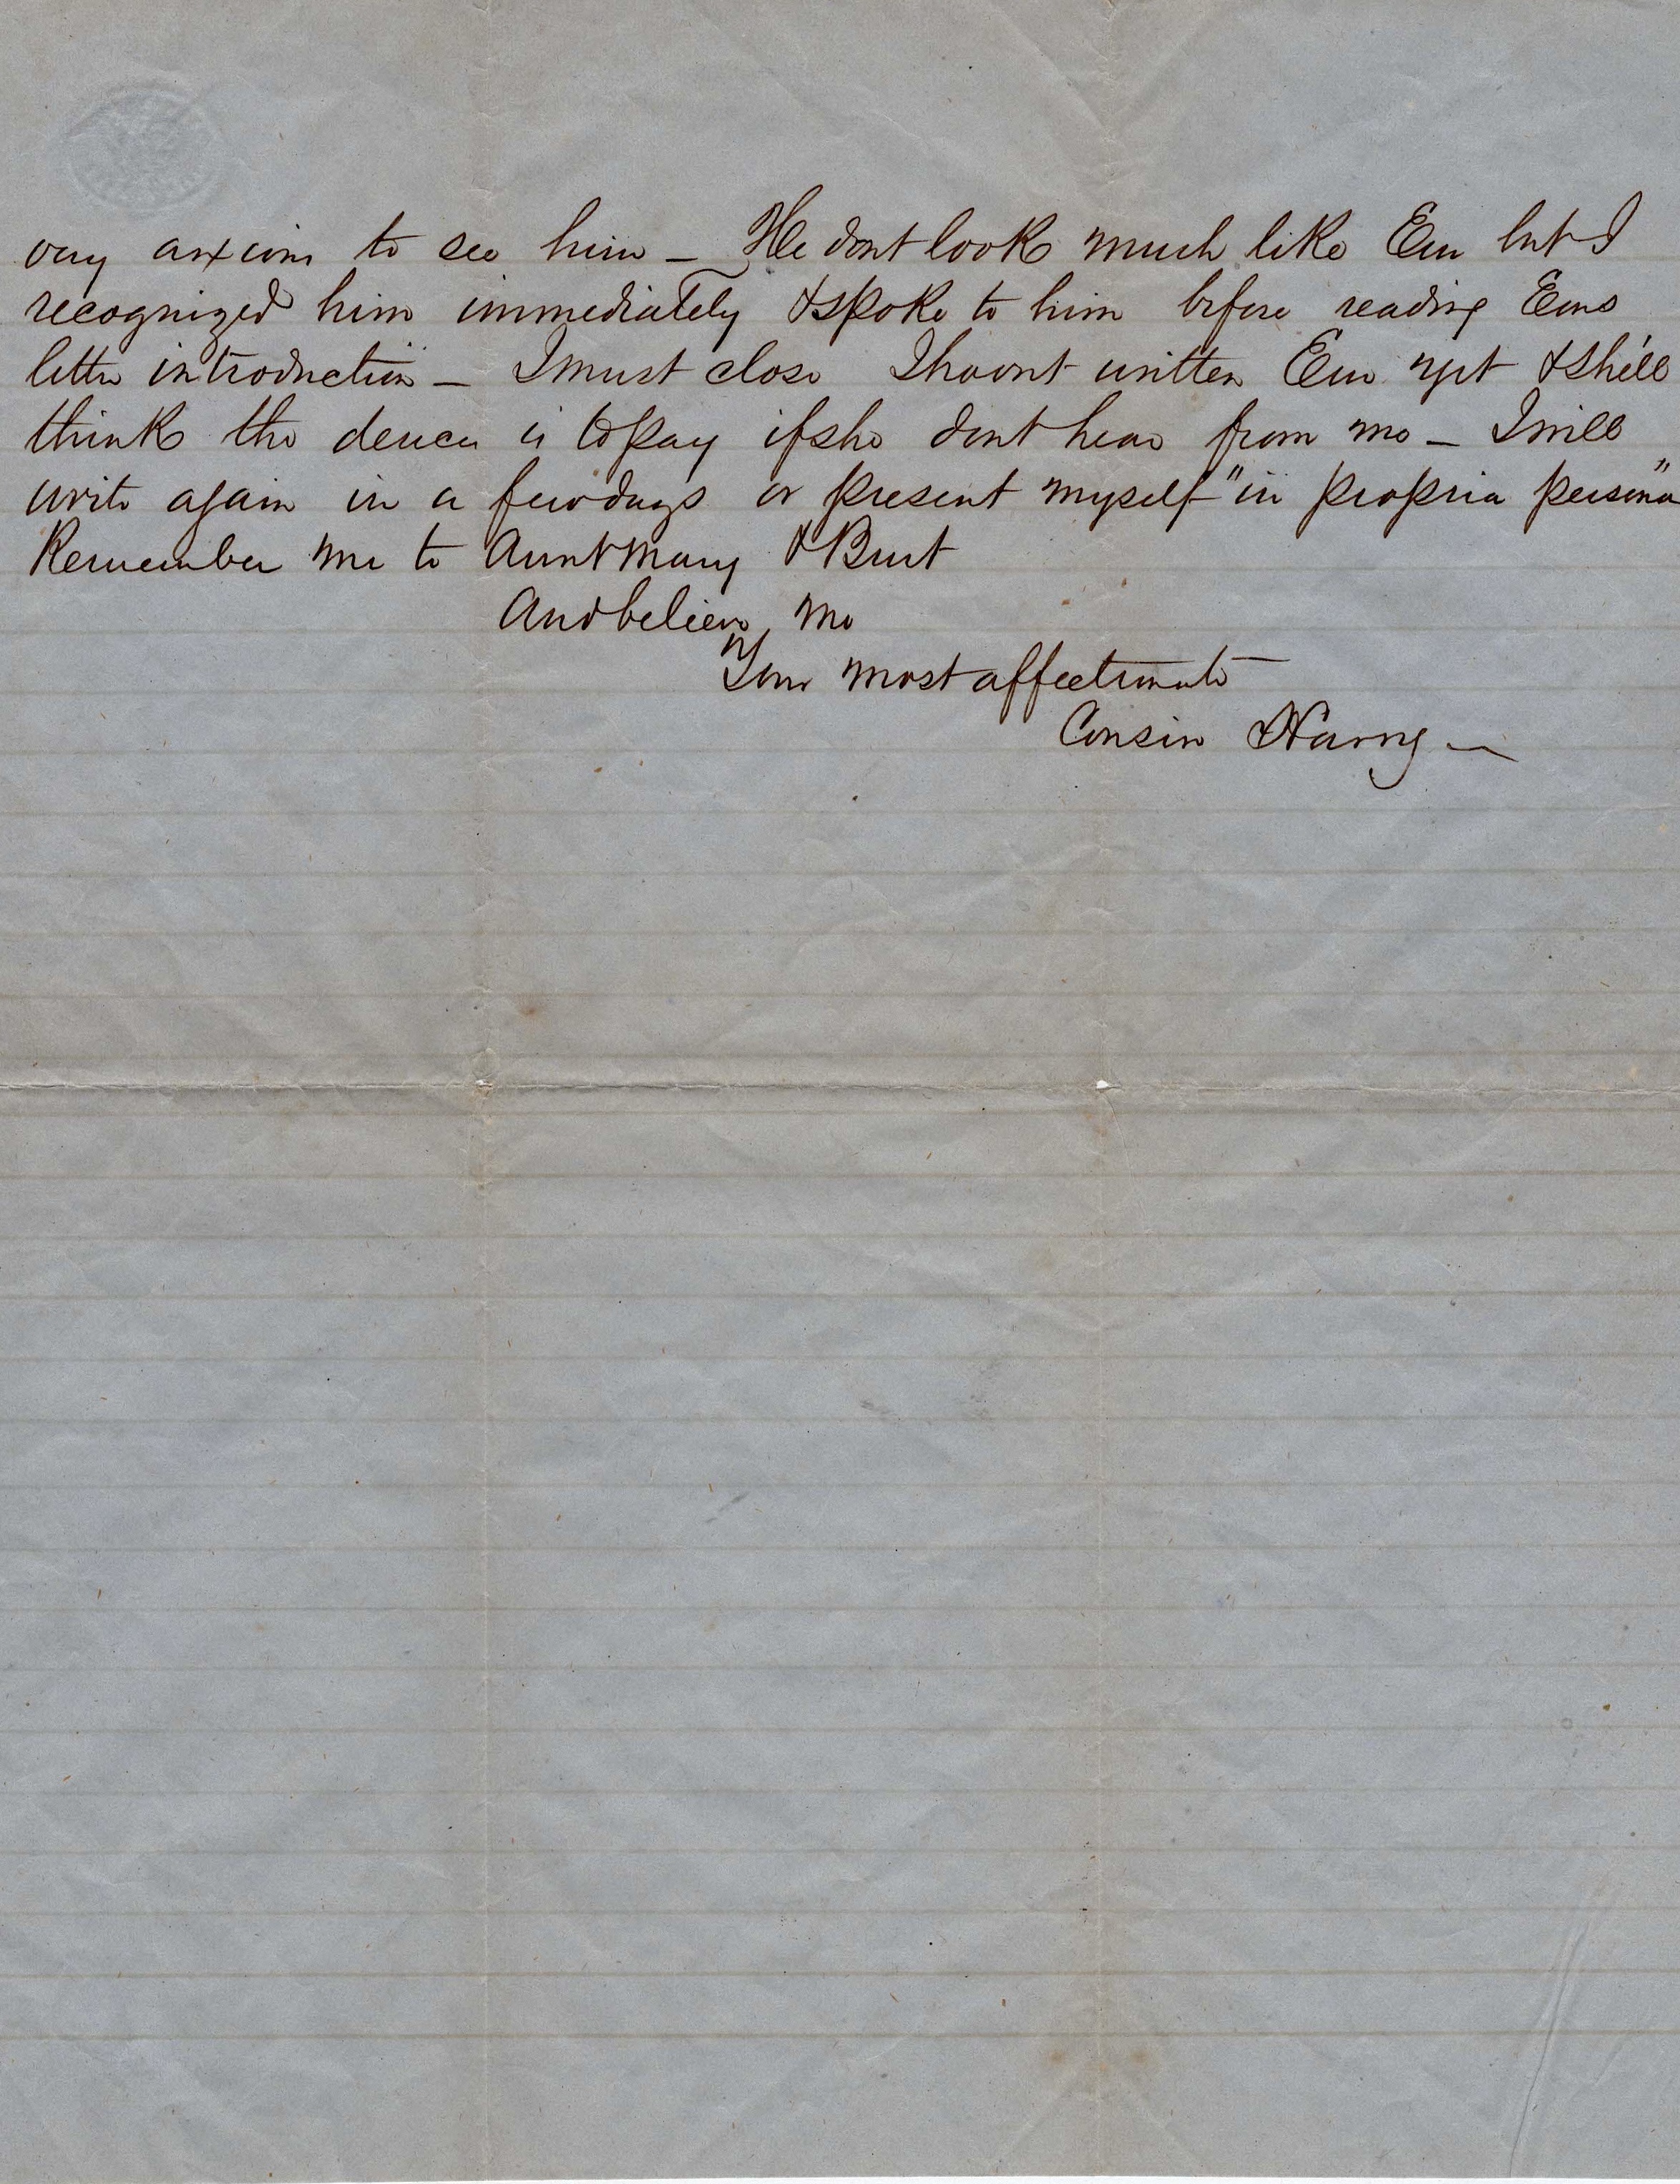 very anxious to see him – He dont look much like Em but I
recognized him immediately & spoke to him before reading Ems
letter introduction – I must close I havent written Em yet & she'll
think the deuce is to pay if she dont hear from me – I will
write again in a few days or present myself "in propria persona"
Remember me to Aunt Mary & Burt
And believe me
Your most affectionate
Cousin Harry –